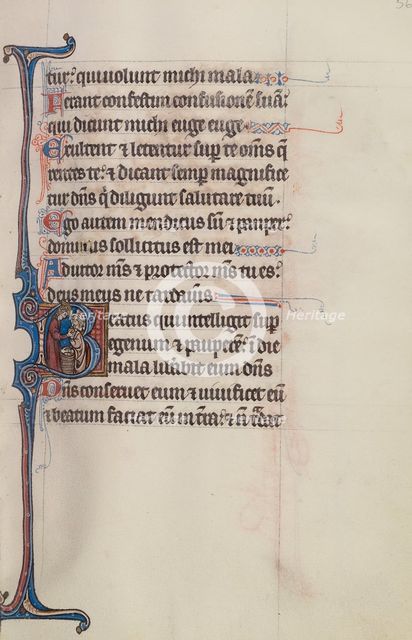 56
tur: qui uolunt michi mala
Ferant confestim confusionē suā:
qui dicunt michi euge euge
Exultent & letentur sup te om̄s q̄
rentes te: & dicant semp magnifice
tur dn̄s q̄ diligunt salutare tuū.
Ego autem mendicus sū & pauper:
dominus sollicitus est mei
Adiutor m̄s & protector m̄s tu es:
deus meus ne tardaueris
Beatus qui intelligit sup
egenum & paupeē: ī die
mala liƀabit eum dn̄s
Dn̄s conseruet eum & uiuificet eū
& beatum faciat eū in t̄ra: & ñ t̄dat
Heritage Heritage